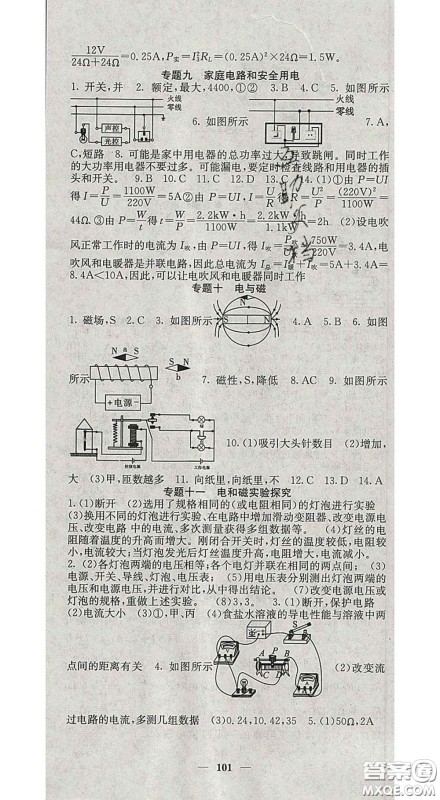 12V/24Ω+24Ω=0.25A,P实=I²RL=(0.25A)²×24Ω=1.5W。
专题九 家庭电路和安全用电
1. 开关,并 2. 额定,最大,4400,①② 3. B 4. C 5. 如图所示
火线
零线
声控
光控
6. 如图所示
火线
零线
7. A,
C,短路 8. 可能是家中用电器的总功率过大,导致跳闸。同时工作
的大功率用电器不要过多。可能漏电,要定时检查线路和用电器的插
头和开关。 9. D 10. B 11. D 12. D 13. C 14. (1)①由P=UI,
得I=P/U=1100W/220V=5A②由P=UI,I=U/R得R=U²/P=(220V)²/1100W=
44Ω。③由P=W/t得t=W/P=2.2kW·h/1100W=2.2kW·h/1.1kW=2h (2)设电吹
风正常工作时的电流为I吹,由P=UI,得I吹=P吹/U=750W/220V≈3.4A,电
吹风和电暖器是并联电路,因此总电流为I总=I暖+I吹=5A+3.4A=
8.4A<10A,因此,可以让电吹风和电暖器同时工作
专题十 电与磁
1. 磁场,S 2. C 3. 如图所示
N
S
4. A 5. B 6. 如图
所示
N a S
S N
b
+ 电源 -
7. 磁性,S,降低 8. AC 9. 如图所示
控制电源
工作电源
10. (1)吸引大头针数目 (2)增加,
大 (3)甲,匝数越多 11. 向纸里,向纸里,不 12. C 13. D 14. A
专题十一 电和磁实验探究
1. (1)断开 (2)选用了规格相同的(或电阻相同的)的灯泡进行实验
(3)换用不同的灯泡进行实验、在电路中增加滑动变阻器、改变电源电
压、改变电路中的电流,多次测量获得多组实验数据。 (4)灯丝的电阻
随着温度的升高而增大。刚闭合开关时,灯丝的温度较低,电阻较
小,电流较大;当灯泡发光后灯丝温度升高,电阻增大,电流减小。
2. (2)各灯泡两端的电压相等;各个电灯并联在相同的两点间; (3)电
源、开关、导线、灯泡、电压表; (5)用电压表分别测出灯泡两端的
电压和电源电压,并进行对比,从中得出结论。 (7)改变电源电压或
灯泡的规格,重做上述实验。 (8)3,3。 3. (1)断开,保护电路
(2)电流大小 (3)①,② (4)甲,甲 (4)食盐水溶液的导电性能与溶液中两
点间的距离有关 4. 如图所示
A
P
B
C
D
(2)改变流
过电路的电流,多测几组数据 (3)0.24,10.42,35 5. (1)50Ω,2A
101
答案圈
MXQE.COM